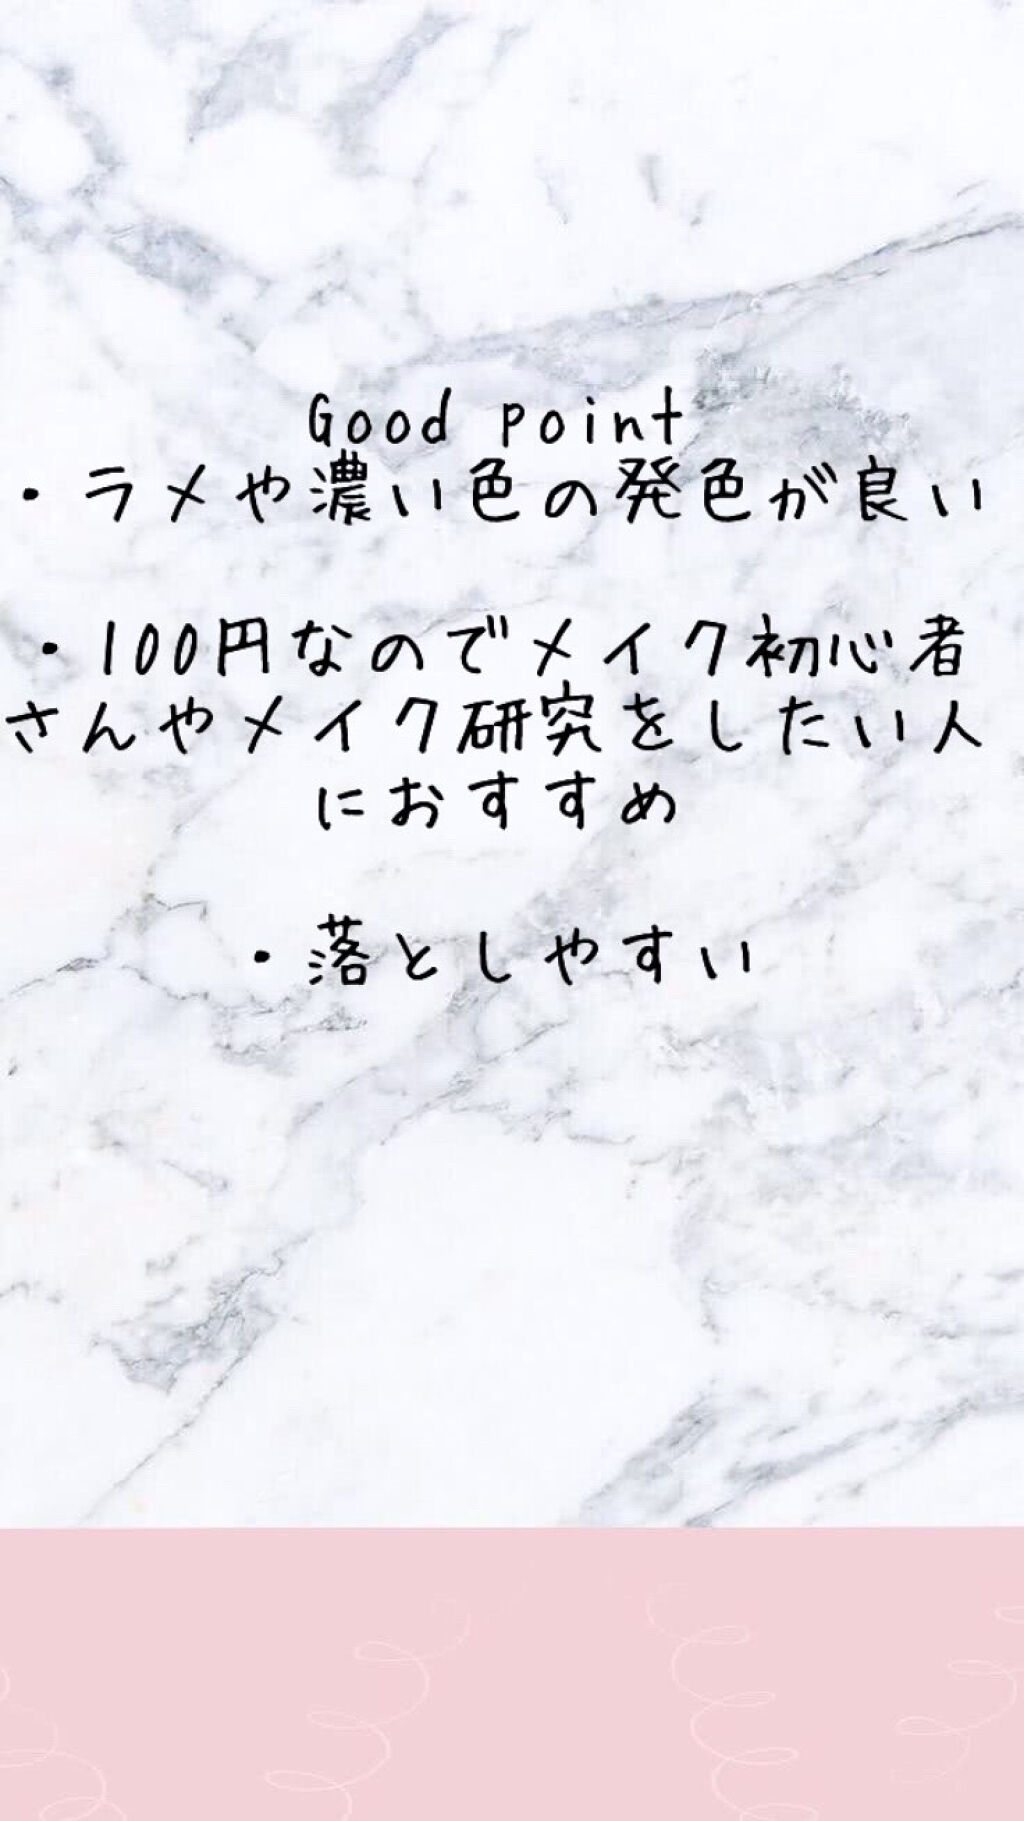 Good point
・ラメや濃い色の発色が良い
・100円なのでメイク初心者
さんやメイク研究をしたい人
におすすめ
・落としやすい